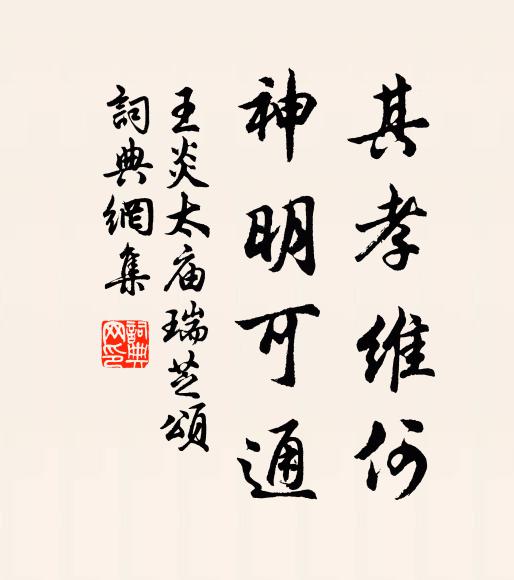 其孝維何
神明可通
王炎太庙瑞芝頌
詞典網集
詞典
网印